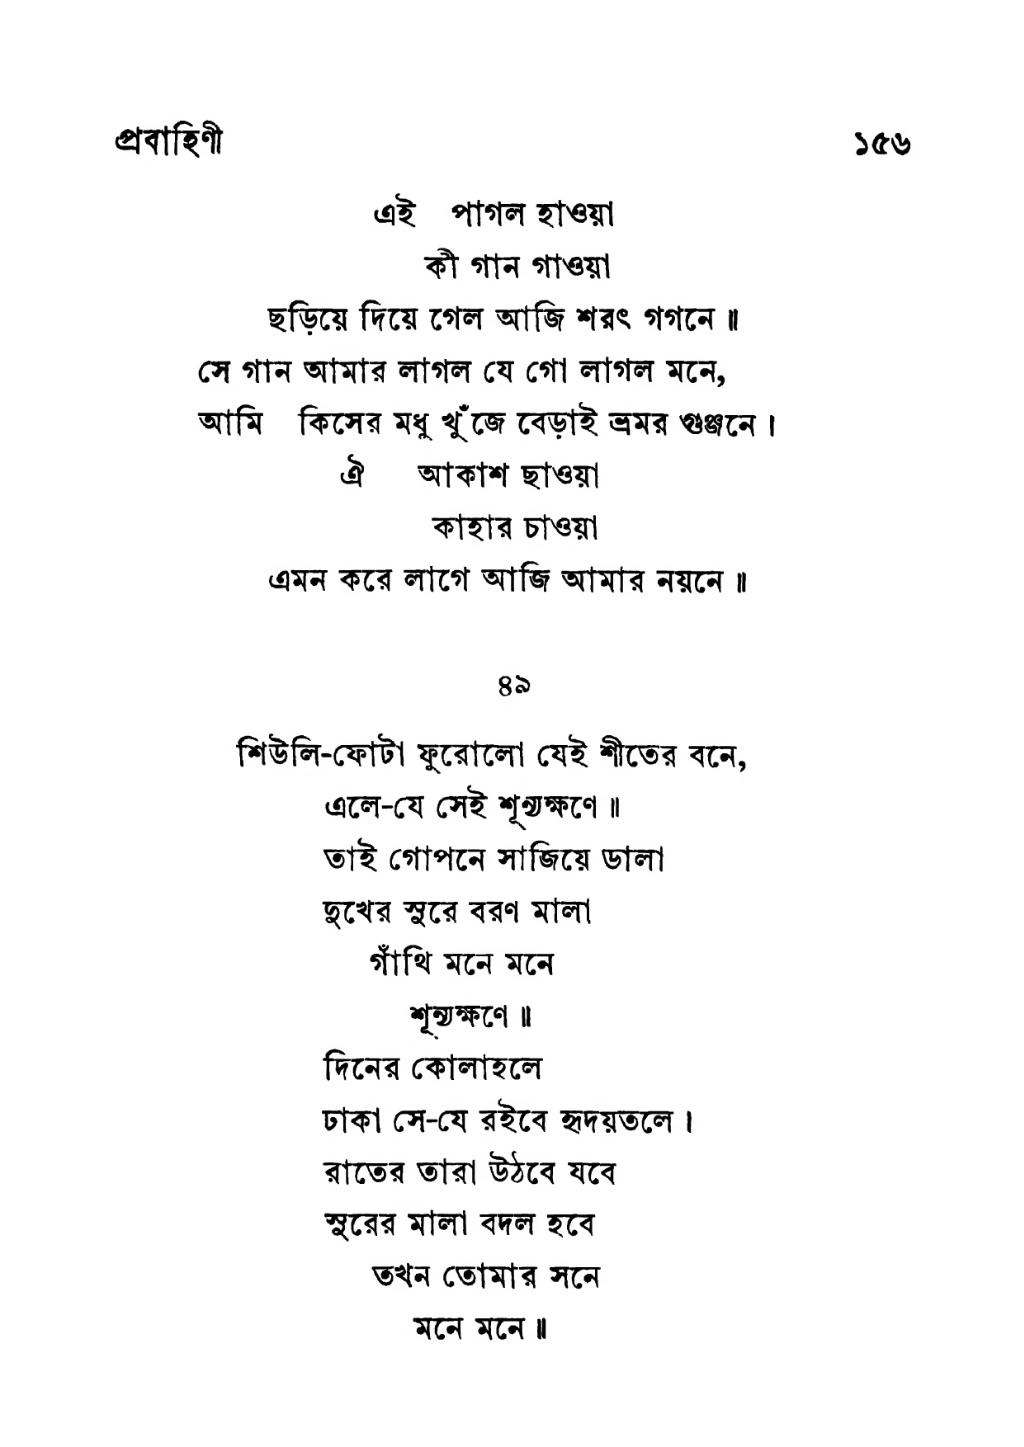 প্রবাহিণী ১৫৬
এই পাগল হাওয়া
কী গান গাওয়া
ছড়িয়ে দিয়ে গেল আজি শরৎ গগনে॥
সে গান আমার লাগল যে গো লাগল মনে,
আমি কিসের মধু খুঁজে বেড়াই ভ্রমর গুঞ্জনে।
ঐ আকাশ ছাওয়া
কাহার চাওয়া
এমন করে লাগে আজি আমার নয়নে॥
৪৯
শিউলি-ফোটা ফুরোলো যেই শীতের বনে,
এলে-যে সেই শূন্যক্ষণে॥
তাই গোপনে সাজিয়ে ডালা
দুখের সুরে বরণ মালা
গাঁথি মনে মনে
শূন্যক্ষণে॥
দিনের কোলাহলে
ঢাকা সে-যে রইবে হৃদয়তলে।
রাতের তারা উঠবে যবে
সুরের মালা বদল হবে
তখন তোমার সনে
মনে মনে॥